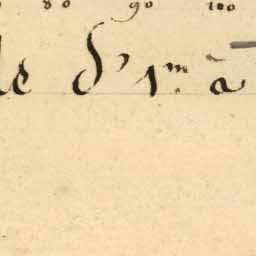 80 90 100
de d'1.m à